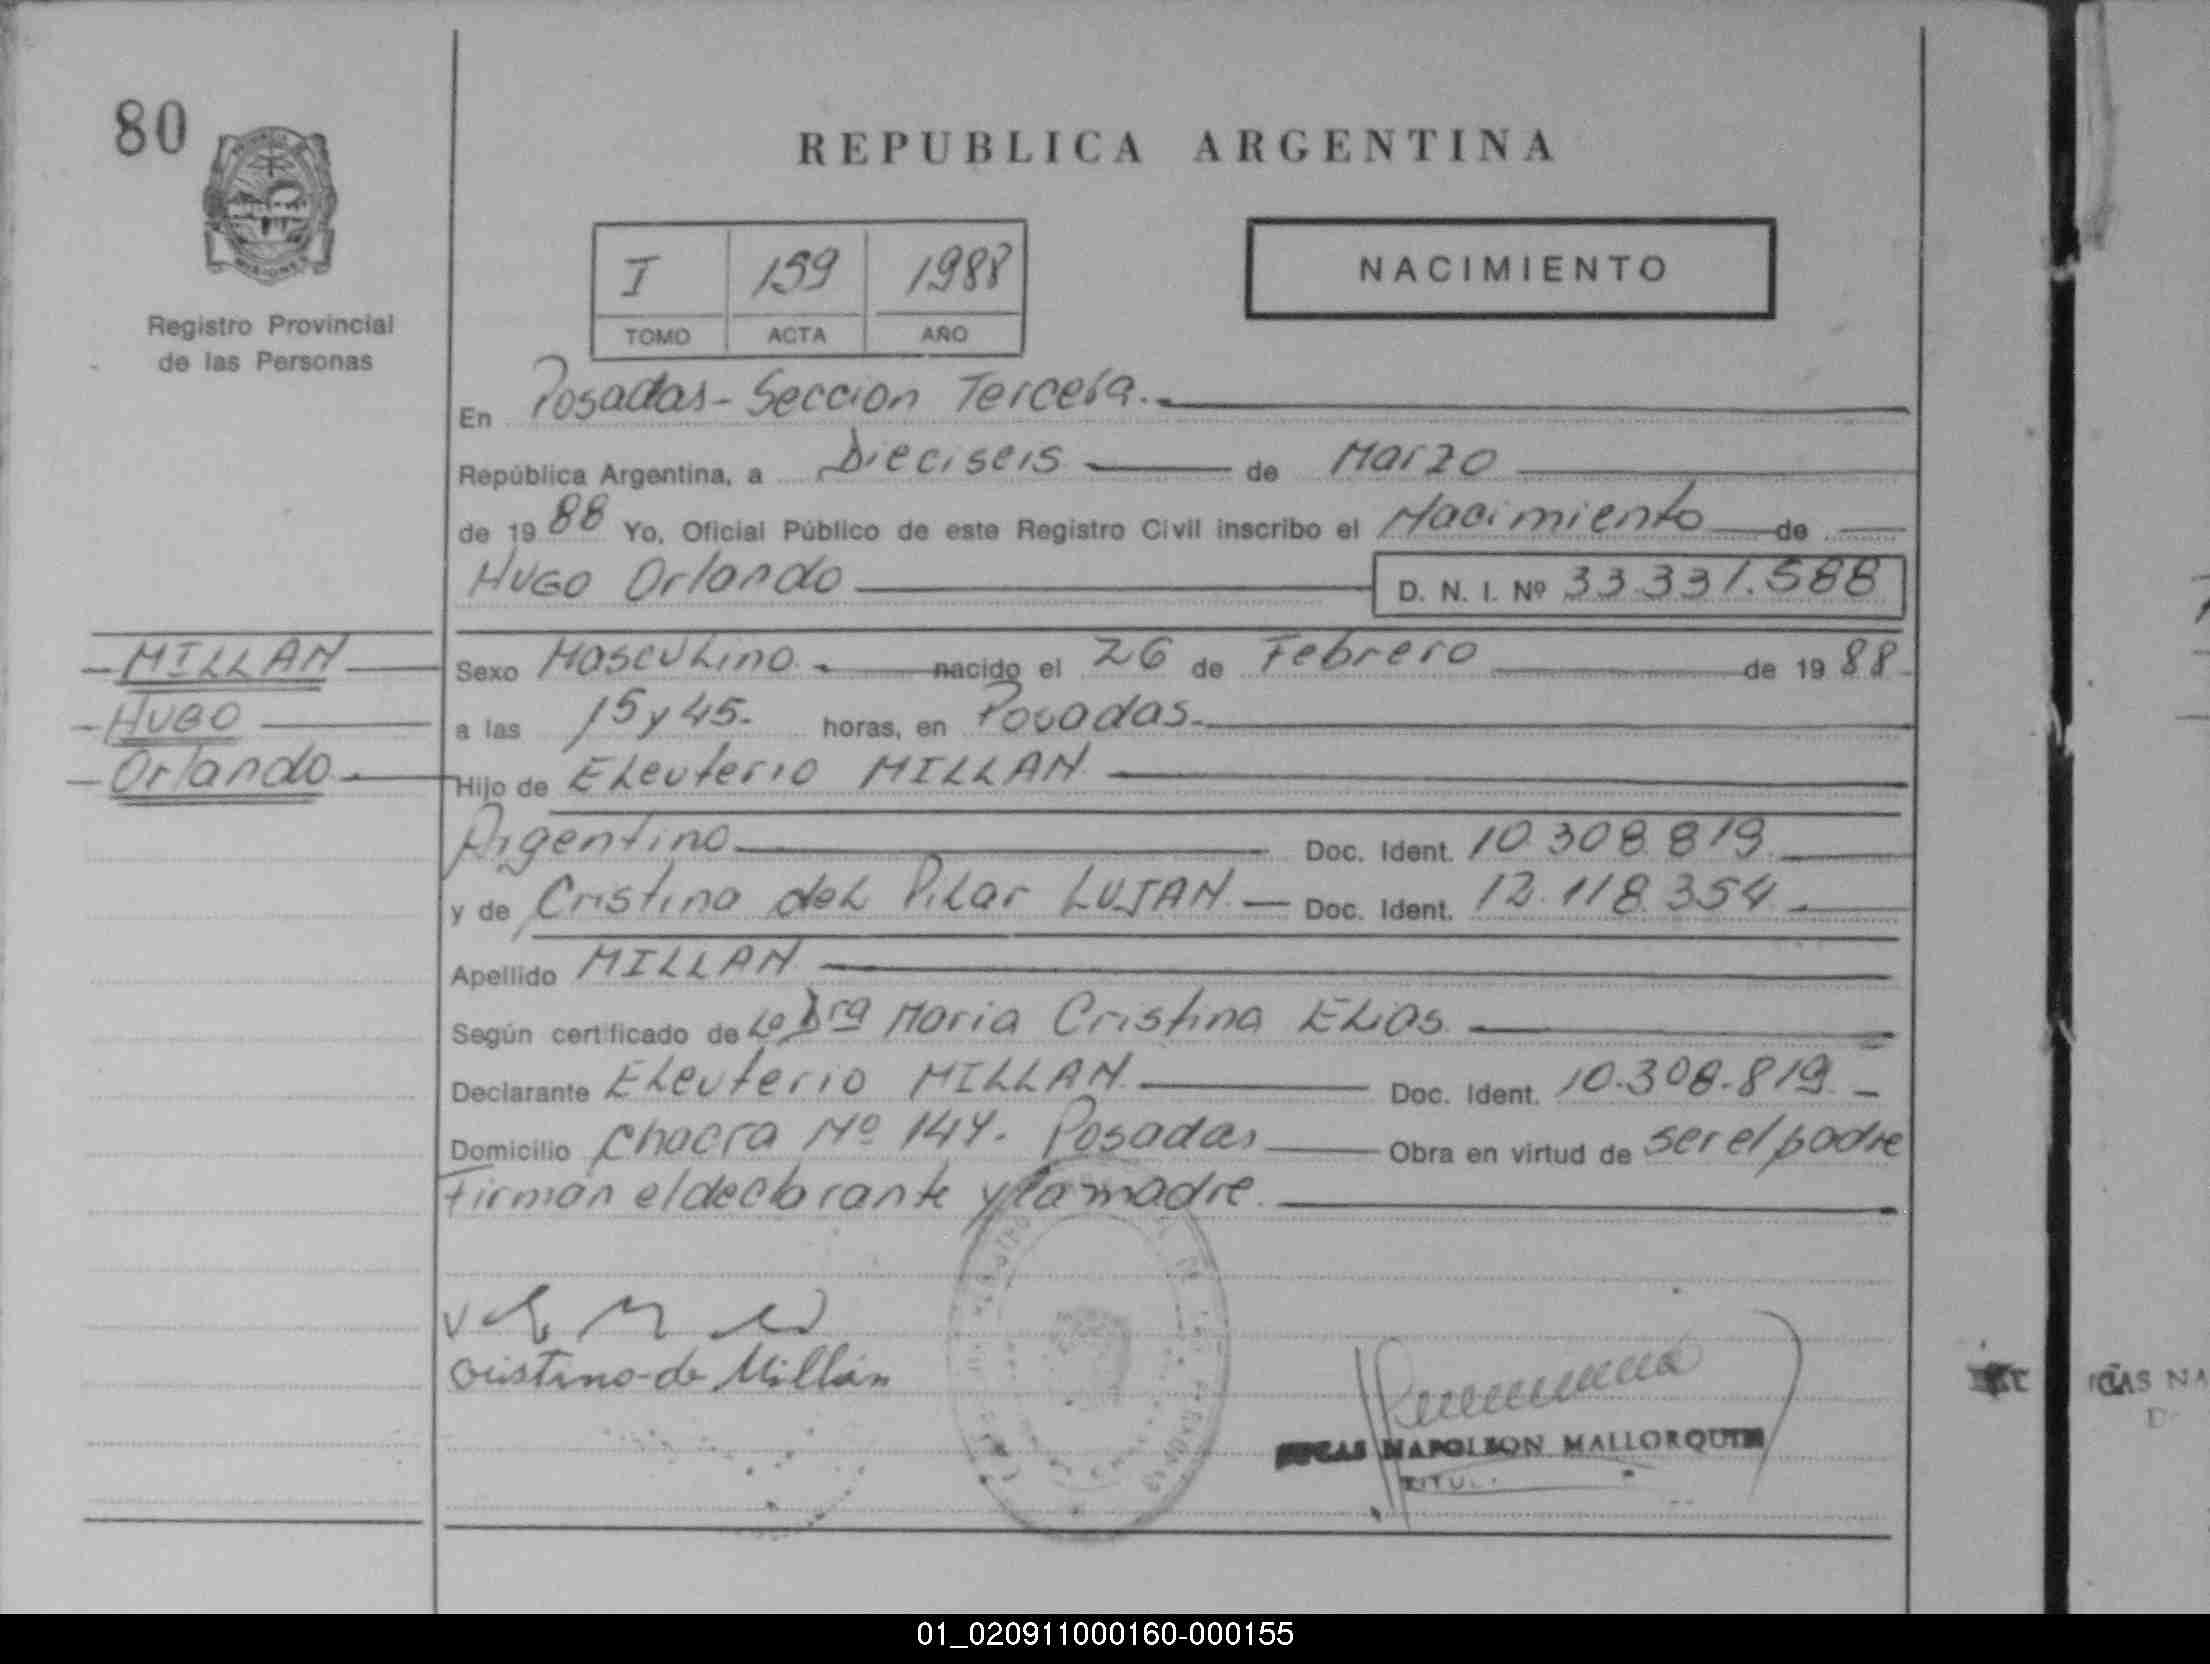 80
REPUBLICA ARGENTINA
I 159 1988
TOMO ACTA AÑO
NACIMIENTO
Registro Provincial
de las Personas
En Posadas - Seccion Tercera.
República Argentina, a Dieciseis de Marzo
de 1988 Yo, Oficial Público de este Registro Civil inscribo el Nacimiento de
Hugo Orlando D. N. I. Nº 33.331.588
MILLAN
Hugo
Orlando
Sexo Masculino. nacido el 26 de Febrero de 1988
a las 15 y 45. horas, en Posadas.
Hijo de Eleuterio MILLAN
Argentino Doc. Ident. 10.308.819
y de Cristina del Pilar LUJAN Doc. Ident. 12.118.354
Apellido MILLAN
Según certificado de La Dra Maria Cristina Elias
Declarante Eleuterio MILLAN Doc. Ident. 10.308.819
Domicilio Chacra Nº 144. Posadas Obra en virtud de ser el padre
Firman el declarante y la madre.
Cristina de Millán
NAPOLEON MALLORQUIN
01_020911000160-000155